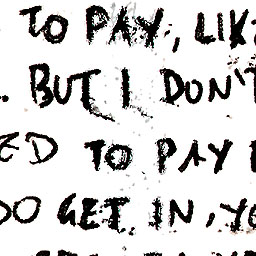 TO PAY, LIK
. BUT I DON'T
ED TO PAY
DO GET IN, YO